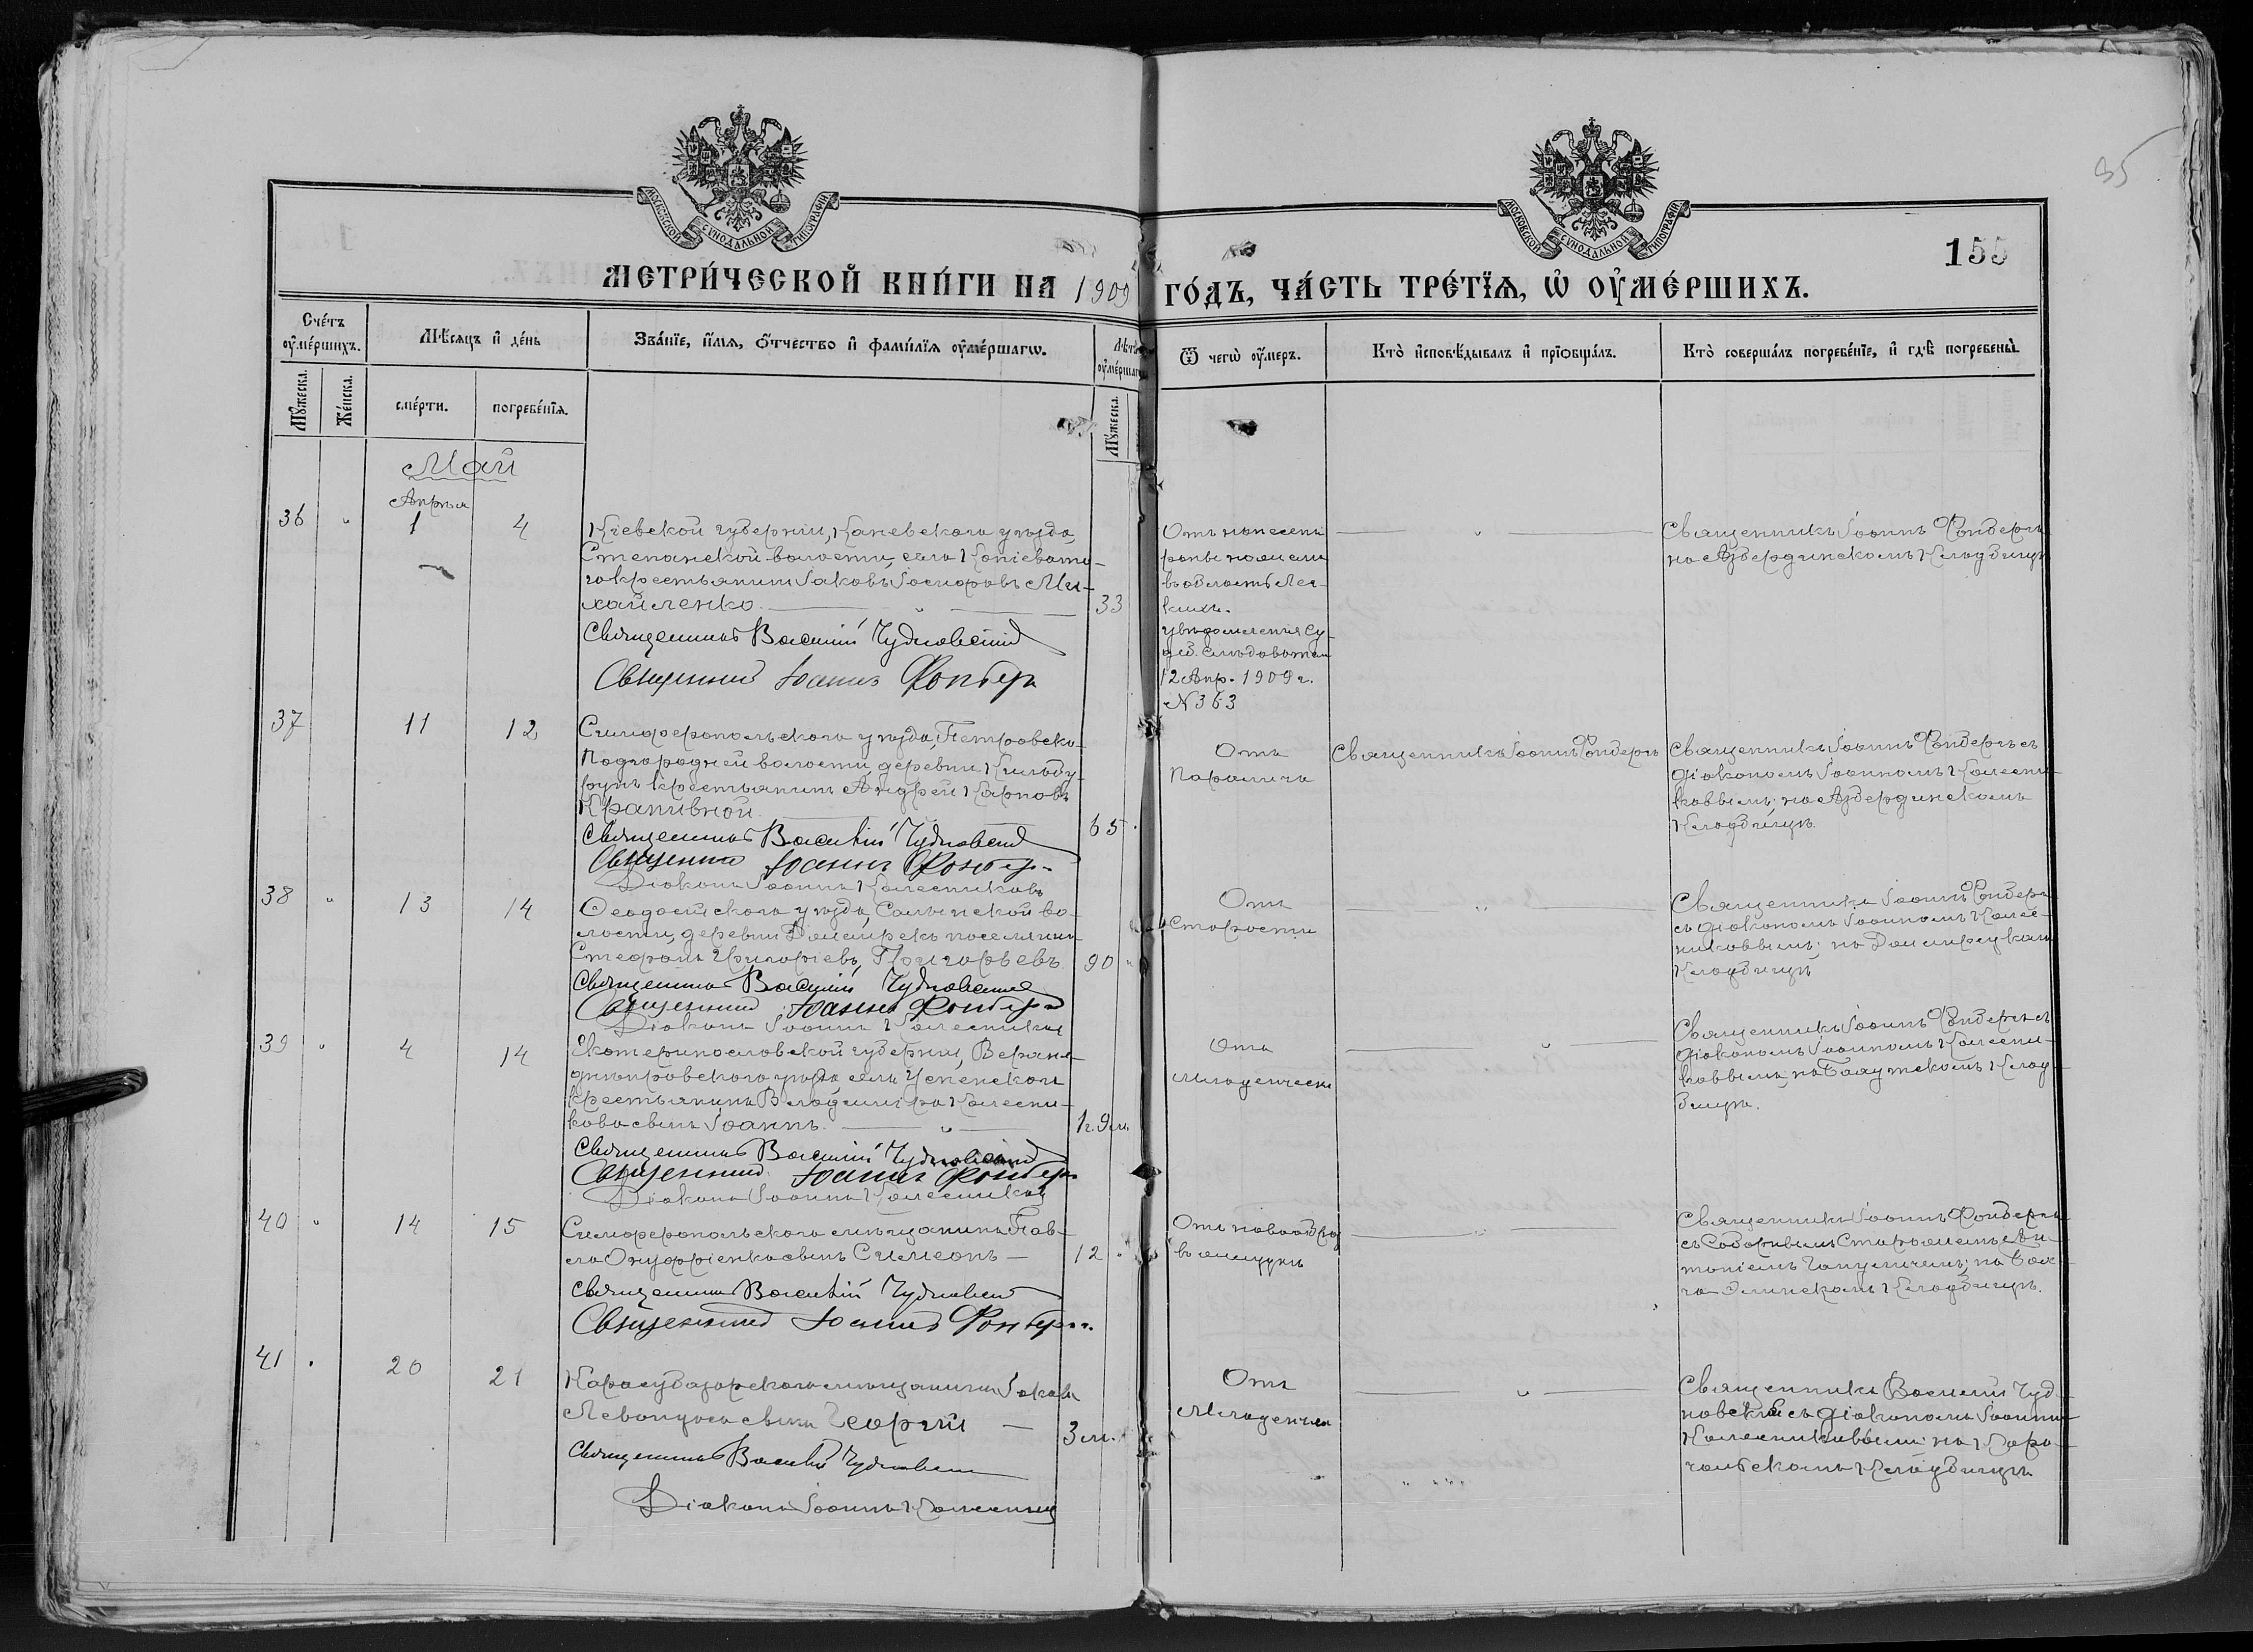 МОСКОВСКОЙ СѴНОДАЛЬНОЙ ТИПОГРАФІИ
МОСКОВСКОЙ СѴНОДАЛЬНОЙ ТИПОГРАФІИ
95
155
МЕТРИ́ЧЕСКОЙ КНИ́ГИ НА 1909 ГО́ДЪ, ЧА́СТЬ ТРЕ́ТЇѦ, Ѡ҆ ОУ҆МЕ́РШИХЪ.
Сче́тъ оу҆ме́ршихъ.
Мꙋ́жеска.
Же́нска.
Мѣ́сяцъ и҆ де́нь
сме́рти.
погребе́нїѧ.
Зва́нїе, и҆́мѧ, ѻ҆́тчество и҆ фами́лїѧ оу҆ме́ршагѡ.
Лѣ́та оу҆ме́ршагѡ
Мꙋ́жеска.
Ѿ чегѡ̀ оу҆́меръ.
Кто̀ и҆сповѣ́дывалъ и҆ прїѡбща́лъ.
Кто̀ соверша́лъ погребе́нїе, и҆ гдѣ̀ погребены̀.
Май
Апрѣля
36 " 1 4
Кіевской губерніи, Каневскаго уѣзда,
Степанской волости, села Копіевата-
го крестьянинъ Іаковъ Іосифовъ Ми-
хайленко " 33
Священникъ Василій Чудновскій
Священникъ Іоаннъ Фонберъ
Отъ нанесен.
раны
въ область лег-
кихъ.
увѣдомленія Су-
деб. слѣдователя
12 Апр. 1909 г.
№ 363
"
Священникъ Іоаннъ Фонберъ
на Азбердинскомъ кладбищѣ
37 11 12
Симферопольскаго уѣзда, Петровско-
Подгородней волости, деревни
крестьянинъ Андрей Карповъ
Крапивной 65
Священникъ Василій Чудновскій
Священникъ Іоаннъ Фонберъ
Діаконъ Іоаннъ Колесниковъ
Отъ
Паралича
Священникъ Іоаннъ Фонберъ
Священникъ Іоаннъ Фонберъ съ
діакономъ Іоанномъ Колесни-
ковымъ; на Азбердинскомъ
Кладбищѣ.
38 " 13 14
Ѳеодосійскаго уѣзда, Салынской во-
лости, деревни поселянинъ
Стефанъ Григорьевъ Григорьевъ 90 "
Священникъ Василій Чудновскій
Священникъ Іоаннъ Фонберъ
Діаконъ Іоаннъ Колесниковъ
Отъ
Старости
"
Священникъ Іоаннъ Фонберъ
съ діакономъ Іоанномъ Колес-
никовымъ; на
Кладбищѣ
39 " 4 14
Екатеринославской губерніи, Верхне-
днѣпровскаго уѣзда, села Успенскаго
крестьянина Владиміра Колесни-
кова сынъ Іоаннъ. " 1 г. 9 м.
Священникъ Василій Чудновскій
Священникъ Іоаннъ Фонберъ
Діаконъ Іоаннъ Колесниковъ
Отъ
младенческ.
"
Священникъ Іоаннъ Фонберъ съ
діакономъ Іоанномъ Колесни-
ковымъ; на клад-
бищѣ.
40 " 14 15
Симферопольскаго мѣщанина Пав-
ла Онуфріенка сынъ Симеонъ — 12 "
Священникъ Василій Чудновскій
Священникъ Іоаннъ Фонберъ
Отъ новообраз.
въ желудкѣ
"
Священникъ Іоаннъ Фонберъ
съ
кладбищѣ.
41 " 20 21
Карасубазарскаго мѣщанина Іакова
сынъ Георгій — 3 м.
Священникъ Василій Чудновскій
Діаконъ Іоаннъ Колесниковъ
Отъ
Младенческ.
"
Священникъ Василій Чуд-
новскій съ діакономъ Іоанномъ
Колесниковымъ: на
кладбищѣ